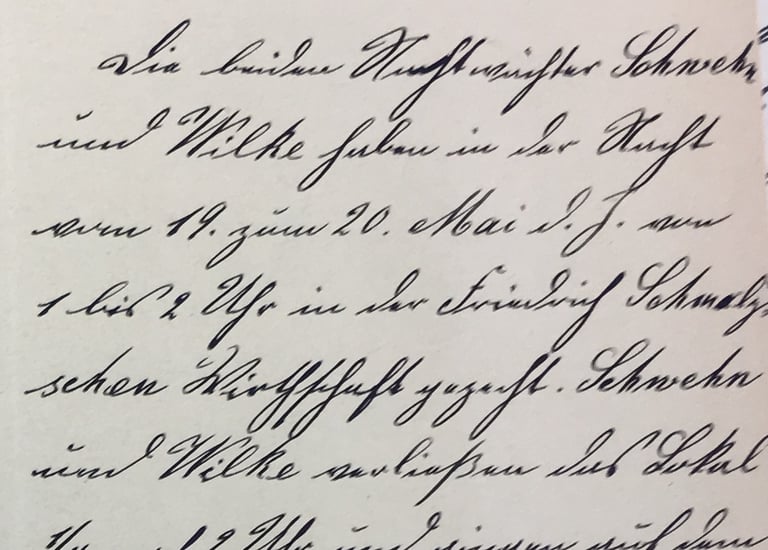 Die beiden Nachtwächter Schwehn
und Wilke haben in der Nacht
vom 19. zum 20. Mai d. J. von
1 bis 2 Uhr in der Friedrich Schmalz-
schen Wirthschaft gezecht. Schwehn
und Wilke verließen das Lokal
2 Uhr und gingen auf dem